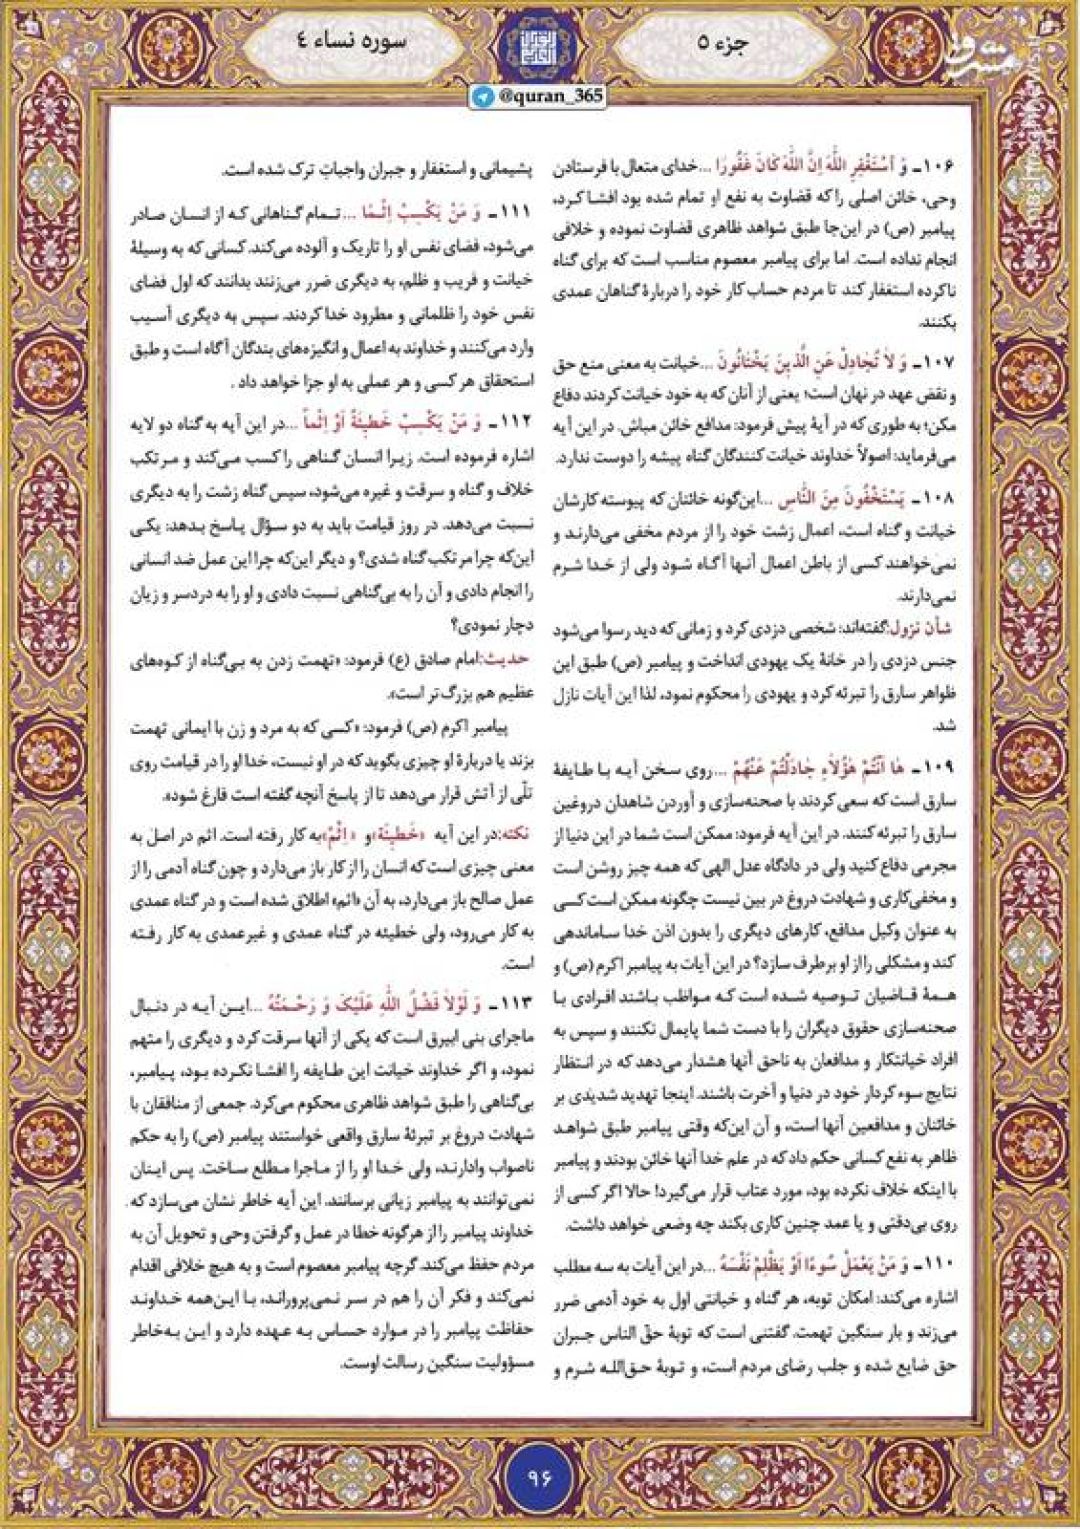 جزء ۵
سوره نساء ۴
مشرق
@quran_365
۱۰۶ـ وَ اسْتَغْفِرِ اللّٰهَ اِنَّ اللّٰهَ کَانَ غَفُورًا ...خدای متعال با فرستادن
وحی، خائن اصلی را که قضاوت به نفع او تمام شده بود افشا کرد،
پیامبر (ص) در این‌جا طبق شواهد ظاهری قضاوت نموده و خلافی
انجام نداده است. اما برای پیامبر معصوم مناسب است که برای گناه
ناکرده استغفار کند تا مردم حساب کار خود را دربارهٔ گناهان عمدی
بکنند.
۱۰۷ـ وَ لاٰ تُجٰادِلْ عَنِ الَّذِینَ یَخْتٰانُونَ ...خیانت به معنی منع حق
و نقض عهد در نهان است؛ یعنی از آنان که به خود خیانت کردند دفاع
مکن؛ به طوری که در آیهٔ پیش فرمود: مدافع خائن مباش. در این آیه
می‌فرماید: اصولاً خداوند خیانت کنندگان گناه پیشه را دوست ندارد.
۱۰۸ـ یَسْتَخْفُونَ مِنَ النّٰاسِ ...این‌گونه خائنان که پیوسته کارشان
خیانت و گناه است، اعمال زشت خود را از مردم مخفی می‌دارند و
نمی‌خواهند کسی از باطن اعمال آنها آگاه شود ولی از خدا شرم
نمی‌دارند.
شأن نزول:گفته‌اند: شخصی دزدی کرد و زمانی که دید رسوا می‌شود
جنس دزدی را در خانهٔ یک یهودی انداخت و پیامبر (ص) طبق این
ظواهر سارق را تبرئه کرد و یهودی را محکوم نمود، لذا این آیات نازل
شد.
۱۰۹ـ هٰا اَنْتُمْ هٰؤُلاٰءِ جٰادَلْتُمْ عَنْهُمْ ...روی سخن آیه با طایفهٔ
سارق است که سعی کردند با صحنه‌سازی و آوردن شاهدان دروغین
سارق را تبرئه کنند. در این آیه فرمود: ممکن است شما در این دنیا از
مجرمی دفاع کنید ولی در دادگاه عدل الهی که همه چیز روشن است
و مخفی‌کاری و شهادت دروغ در بین نیست چگونه ممکن است کسی
به عنوان وکیل مدافع، کارهای دیگری را بدون اذن خدا ساماندهی
کند و مشکلی را از او برطرف سازد؟ در این آیات به پیامبر اکرم (ص) و
همهٔ قاضیان توصیه شده است که مواظب باشند افرادی با
صحنه‌سازی حقوق دیگران را با دست شما پایمال نکنند و سپس به
افراد خیانتکار و مدافعان به ناحق آنها هشدار می‌دهد که در انتظار
نتایج سوء کردار خود در دنیا و آخرت باشند. اینجا تهدید شدیدی بر
خائنان و مدافعین آنها است، و آن این‌که وقتی پیامبر طبق شواهد
ظاهر به نفع کسانی حکم داد که در علم خدا آنها خائن بودند و پیامبر
با اینکه خلاف نکرده بود، مورد عتاب قرار می‌گیرد! حالا اگر کسی از
روی بی‌دقتی و یا عمد چنین کاری بکند چه وضعی خواهد داشت.
۱۱۰ـ وَ مَنْ یَعْمَلْ سُوءًا اَوْ یَظْلِمْ نَفْسَهُ ...در این آیات به سه مطلب
اشاره می‌کند: امکان توبه، هر گناه و خیانتی اول به خود آدمی ضرر
می‌زند و بار سنگین تهمت. گفتنی است که توبهٔ حقّ الناس جبران
حق ضایع شده و جلب رضای مردم است، و توبهٔ حق‌الله شرم و
پشیمانی و استغفار و جبران واجباتِ ترک شده است.
۱۱۱ـ وَ مَنْ یَکْسِبْ اِثْمًا ...تمام گناهانی که از انسان صادر
می‌شود، فضای نفس او را تاریک و آلوده می‌کند. کسانی که به وسیلهٔ
خیانت و فریب و ظلم، به دیگری ضرر می‌زنند بدانند که اول فضای
نفس خود را ظلمانی و مطرود خدا کردند. سپس به دیگری آسیب
وارد می‌کنند و خداوند به اعمال و انگیزه‌های بندگان آگاه است و طبق
استحقاق هر کسی و هر عملی به او جزا خواهد داد .
۱۱۲ـ وَ مَنْ یَکْسِبْ خَطِیئَةً اَوْ اِثْماً ...در این آیه به گناه دو لایه
اشاره فرموده است. زیرا انسان گناهی را کسب می‌کند و مرتکب
خلاف و گناه و سرقت و غیره می‌شود، سپس گناه زشت را به دیگری
نسبت می‌دهد. در روز قیامت باید به دو سؤال پاسخ بدهد: یکی
این‌که چرا مرتکب گناه شدی؟ و دیگر این‌که چرا این عمل ضد انسانی
را انجام دادی و آن را به بی‌گناهی نسبت دادی و او را به دردسر و زیان
دچار نمودی؟
حدیث:امام صادق (ع) فرمود: «تهمت زدن به بی‌گناه از کوه‌های
عظیم هم بزرگ تر است».
پیامبر اکرم (ص) فرمود: «کسی که به مرد و زن با ایمانی تهمت
بزند یا دربارهٔ او چیزی بگوید که در او نیست، خدا او را در قیامت روی
تلّی از آتش قرار می‌دهد تا از پاسخ آنچه گفته است فارغ شود».
نکته:در این آیه «خَطِیئَة»و «اِثْم»به کار رفته است. اثم در اصل به
معنی چیزی است که انسان را از کار باز می‌دارد و چون گناه آدمی را از
عمل صالح باز می‌دارد، به آن «اثم» اطلاق شده است و در گناه عمدی
به کار می‌رود، ولی خطیئه در گناه عمدی و غیرعمدی به کار رفته
است.
۱۱۳ـ وَ لَوْلاٰ فَضْلُ اللّٰهِ عَلَیْکَ وَ رَحْمَتُهُ ...این آیه در دنبال
ماجرای بنی ابیرق است که یکی از آنها سرقت کرد و دیگری را متهم
نمود، و اگر خداوند خیانت این طایفه را افشا نکرده بود، پیامبر،
بی‌گناهی را طبق شواهد ظاهری محکوم می‌کرد. جمعی از منافقان با
شهادت دروغ بر تبرئهٔ سارق واقعی خواستند پیامبر (ص) را به حکم
ناصواب وادارند، ولی خدا او را از ماجرا مطلع ساخت. پس اینان
نمی‌توانند به پیامبر زیانی برسانند. این آیه خاطر نشان می‌سازد که
خداوند پیامبر را از هرگونه خطا در عمل و گرفتن وحی و تحویل آن به
مردم حفظ می‌کند. گرچه پیامبر معصوم است و به هیچ خلافی اقدام
نمی‌کند و فکر آن را هم در سر نمی‌پروراند، با این‌همه خداوند
حفاظت پیامبر را در موارد حساس به عهده دارد و این به‌خاطر
مسؤولیت سنگین رسالت اوست.
۹۶